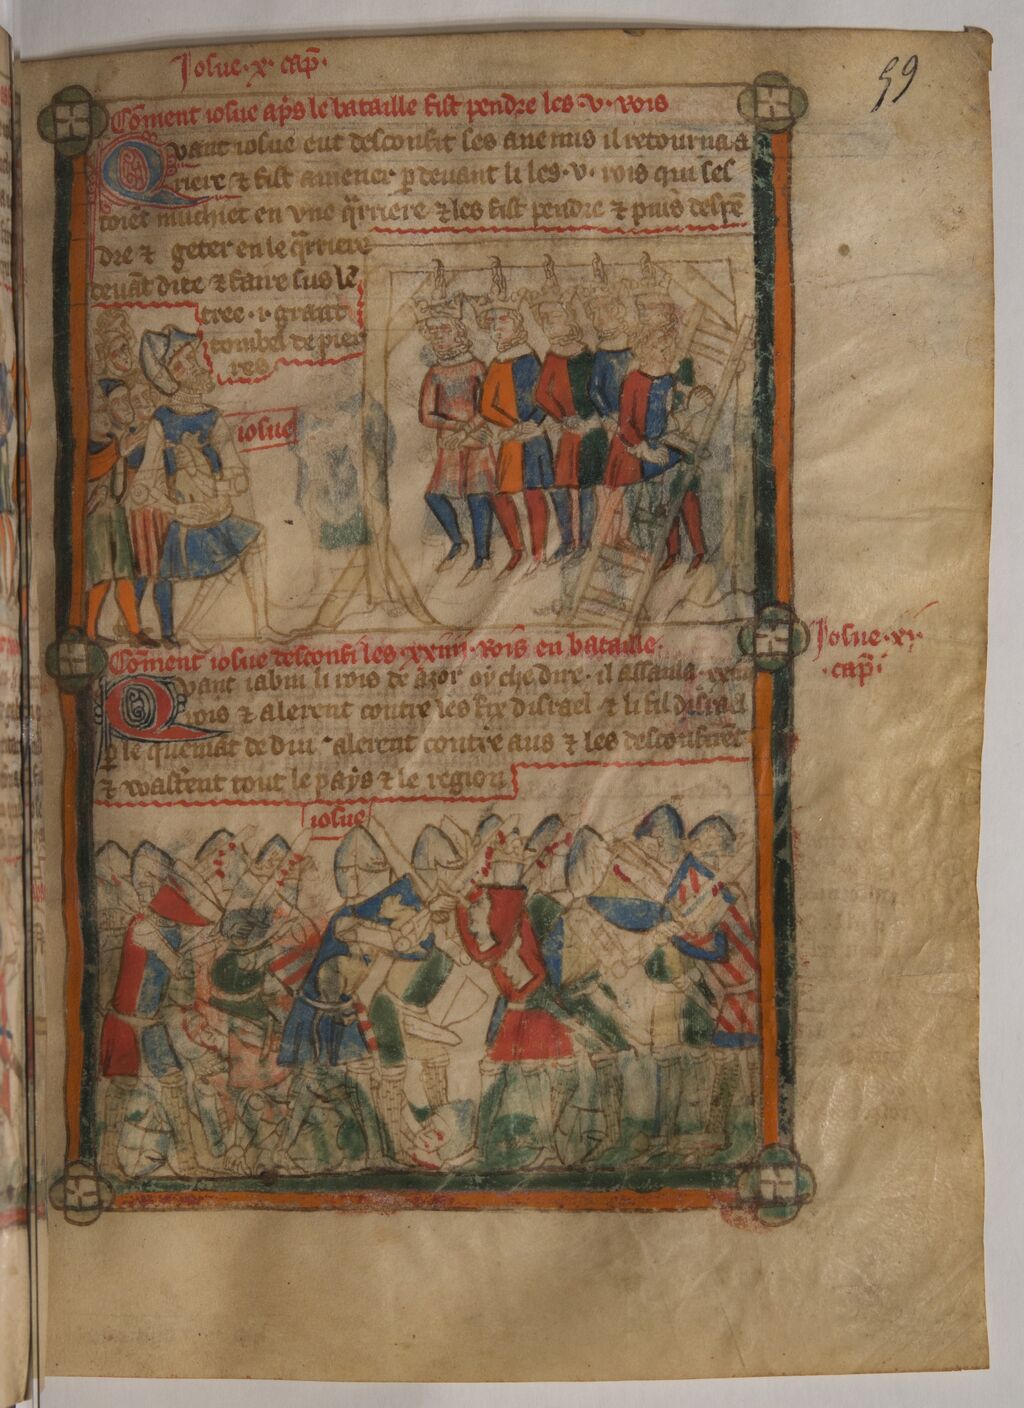 Iosue · x · cap̄ ·
59
Cōment iosue ap̄s le bataille fist pendre les · v · rois
Quant iosue eut desconfit ses anemis il retourna a
riere ⁊ fist amener p̱ deuant li les · v · rois qui ses
toiēt muchiet en vne q̄rriere ⁊ les fist pendre ⁊ puis despē
dre ⁊ geter en le q̄rriere
deuāt dite ⁊ faire sus lē
tree · i · grant
tombel de pier
res
iosue
Cōment iosue desconfi les · xxiiij · rois en bataille ·
Iosue · xi ·
· cap̄i
Quant iabin li rois de azor oy che dire · il assanla
rois ⁊ alerent contre les fix disrael ⁊ li fil disrael
p̱ le quemāt de diu alerent contre aus ⁊ les desconfirēt
⁊ wastent tout le pays ⁊ le region
iosue